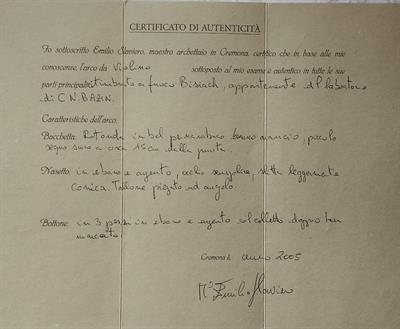 CERTIFICATO DI AUTENTICITÀ
Io sottoscritto Emilio Slaviero, maestro archettaio in Cremona, certifico che in base alle mie
conoscenze, l'arco da Violino sottoposto al mio esame è autentico in tutte le sue
parti principali: attribuito a fuoco Bisiach, appartenente al laboratorio
di C.N. BAZIN.
Caratteristiche dell'arco:
Bacchetta: Rotonda in bel pernambuco bruno arancio, piccolo
segno scuro a circa 15 cm dalla punta.
Nasetto: in ebano e argento, occhio semplice, slitta leggermente
conica. Tallone piegato ad angolo.
Bottone: in 3 pezzi in ebano e argento col colletto doppio ben
marcato.
Cremona li anno 2005
M° Emilio Slaviero